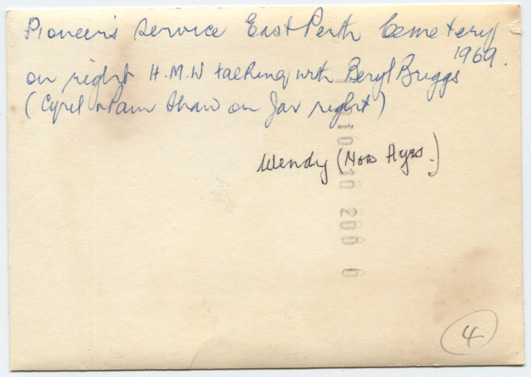 Pioneer's Service East Perth Cemetery
1969.
on right H.M.W talking with Beryl Briggs
(Cyril + Pam Shaw on far right)
Wendy (Now Ayres.)
4